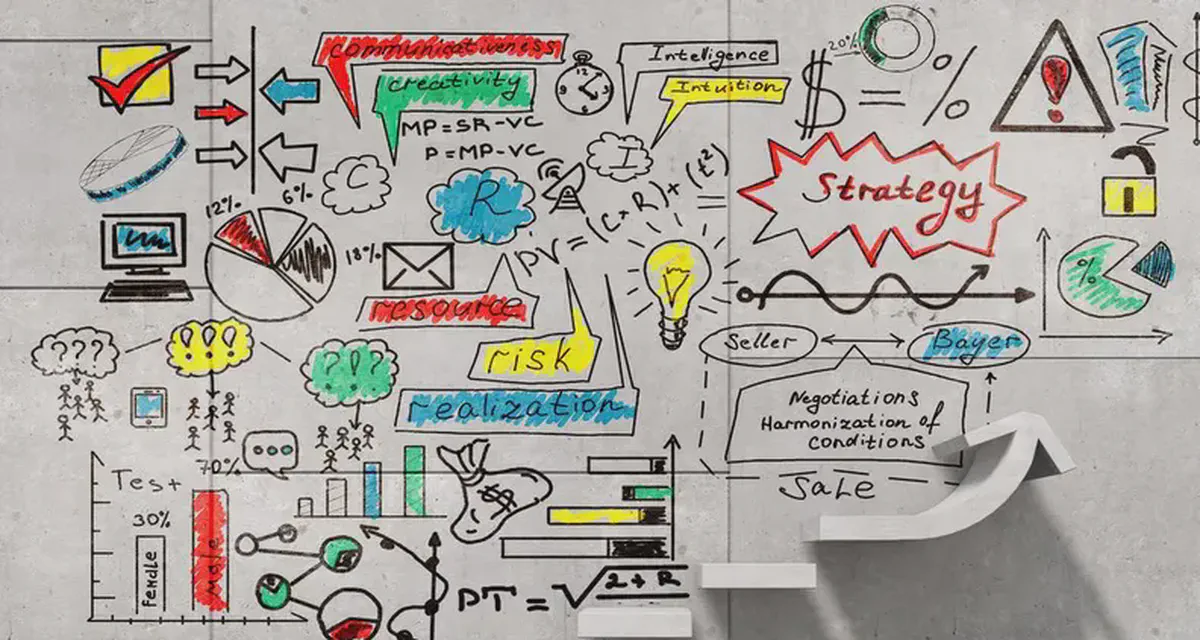 communicativeness
creativity
MP=SR-VC
P=MP-VC
Intelligence
Intuition
20%
$ = %
Strategy
12%
6%
18%
C
R
I
PV=(C+R)+(t²)
=
resource
risk
realization
%
Seller
Bayer
Negotiations
Harmonization of
conditions
SaLe
???
!!!
?!?
70%
Test
30%
Female
Male
$
PT=√2+R